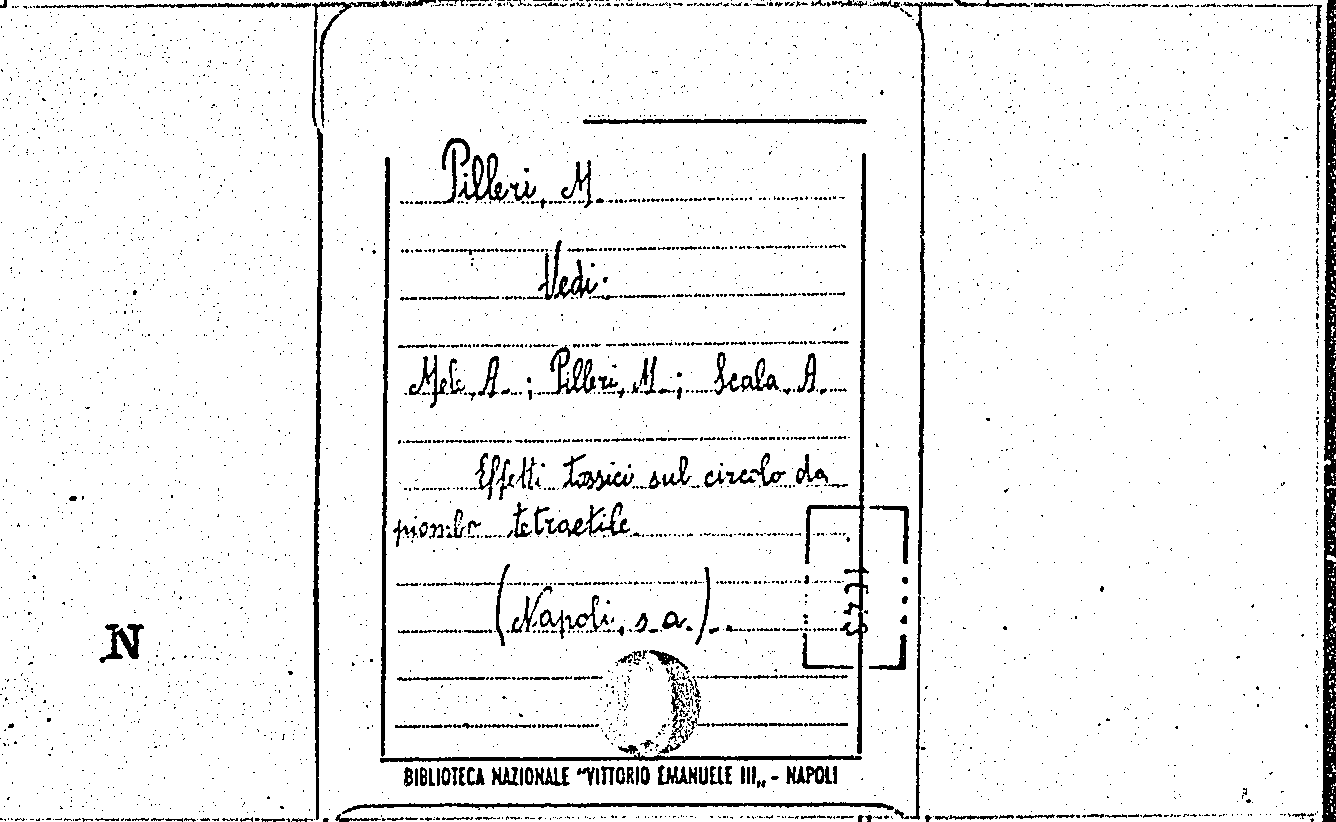 Pilleri, M.
Vedi:
Mele, A.; Pilleri, M.; Scala A.
Effetti tossici sul circolo da
piombo tetraetile.
(Napoli, s.a.).
N
BIBLIOTECA NAZIONALE "VITTORIO EMANUELE III„ - NAPOLI